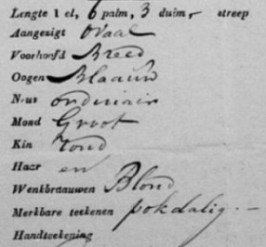 Lengte 1 el, 6 palm, 3 duim, - streep
Aangezigt Ovaal
Voorhoofd Breed
Oogen Blaauw
Neus ordinair
Mond Groot
Kin rond
Haar en
Wenkbraauwen Blond
Merkbare teekenen pokdalig.-
Handteekening